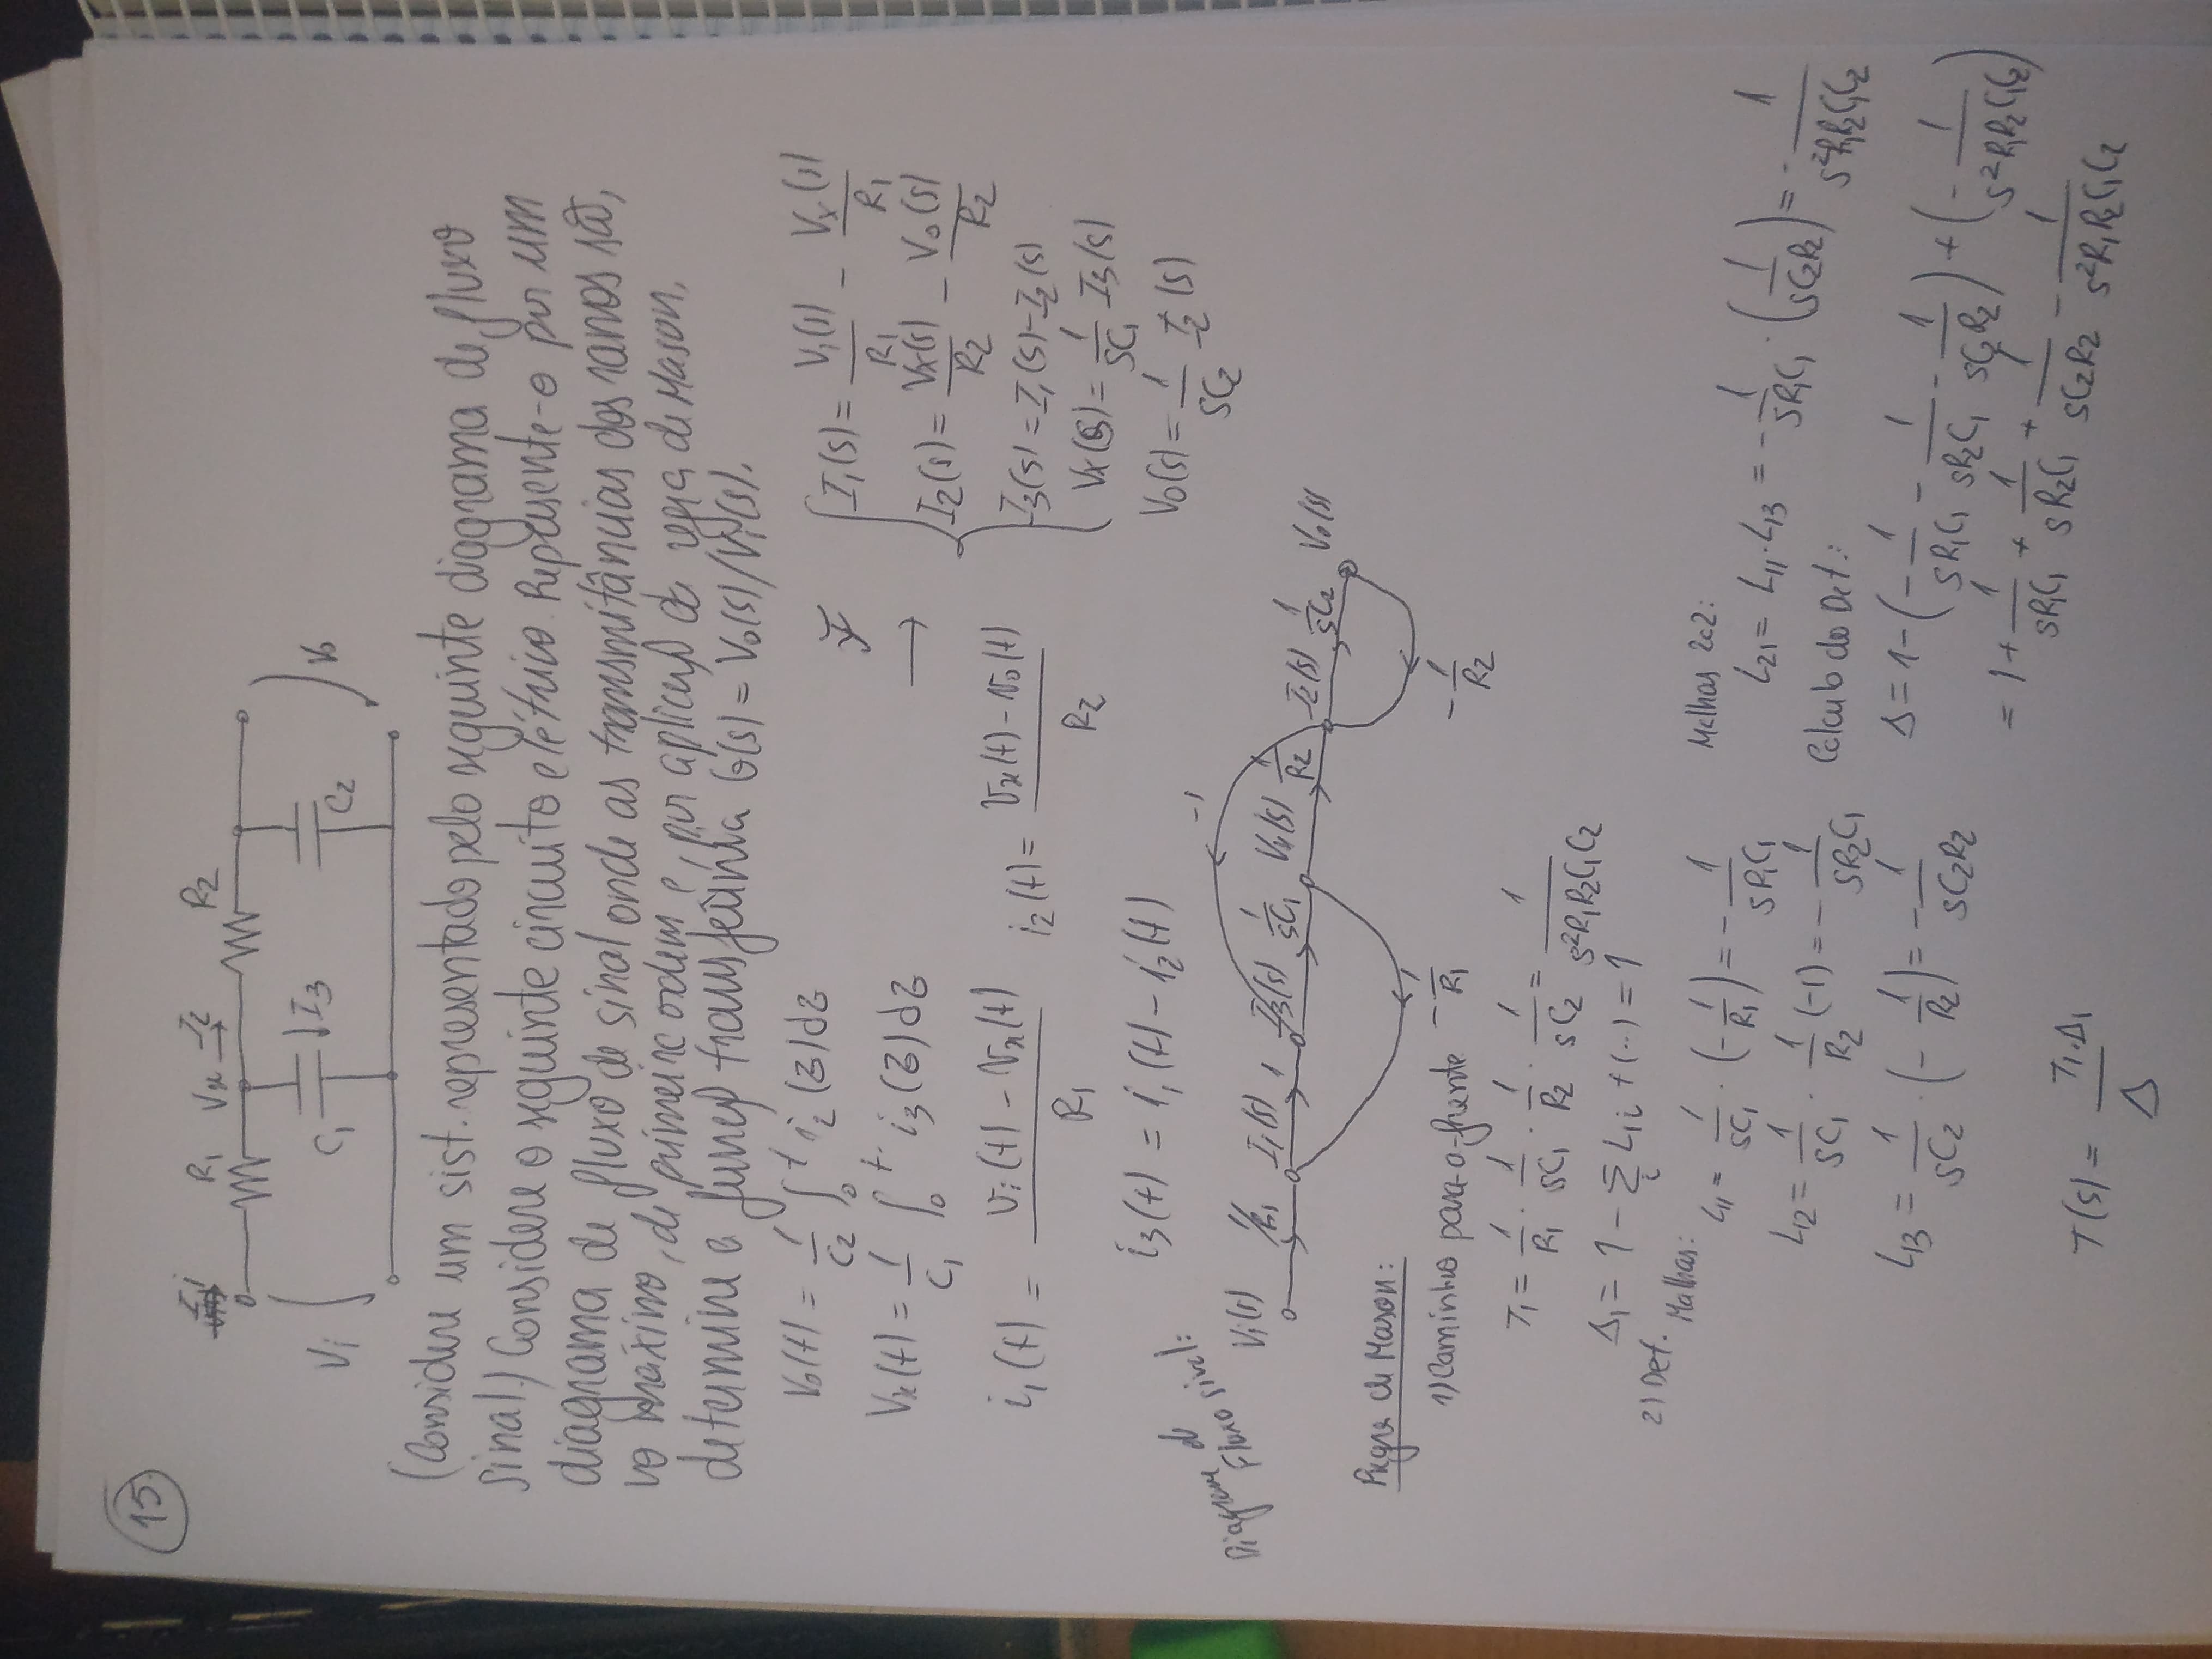 15.
I1 i
R1
Vx
I2
R2
Vi
C1
I3
C2
Vo
(Considere um sist. representado pelo seguinte diagrama de fluxo
sinal.) Considere o seguinte circuito elétrico. Represente-o por um
diagrama de fluxo de sinal onde as transmitâncias dos ramos são,
no máximo, de primeira ordem e, por aplicaçõ da regra de Mason,
determine a funçõ transferência G(s) = Vo(s)/Vi(s).
Vo(t) = 1/C2 ∫0^t i2(z)dz
Vx(t) = 1/C1 ∫0^t i3(z)dz
i1(t) = (vi(t) - vx(t))/R1
i2(t) = (vx(t) - vo(t))/R2
i3(t) = i1(t) - i2(t)
ℒ →
I1(s) = Vi(s)/R1 - Vx(s)/R1
I2(s) = Vx(s)/R2 - Vo(s)/R2
I3(s) = I1(s) - I2(s)
Vx(s) = 1/SC1 I3(s)
Vo(s) = 1/SC2 I2(s)
Diagrama de
Fluxo sinal:
-1
Vi(s) 1/R1 I1(s) 1 I3(s) 1/SC1 Vx(s) 1/R2 I2(s) 1/SC2 Vo(s)
-1/R1
-1/R2
Regra de Mason:
1) Caminho para-a-frente
T1 = 1/R1 · 1/SC1 · 1/R2 · 1/SC2 = 1/S²R1R2C1C2
Δ1 = 1 - Σi L1i + (..) = 1
2) Det.
Malhas:
L11 = 1/SC1 · (-1/R1) = -1/SR1C1
L12 = 1/SC1 · 1/R2 (-1) = -1/SR2C1
L13 = 1/SC2 · (-1/R2) = -1/SC2R2
Malhas 2a2:
L21 = L11·L13 = -1/SR1C1 · (1/SC2R2) = -1/S²R1R2C1C2
Calculo do Det.:
Δ = 1 - (-1/SR1C1 - 1/SR2C1 - 1/SC2R2) + (-1/S²R1R2C1C2)
= 1 + 1/SR1C1 + 1/SR2C1 + 1/SC2R2 - 1/S²R1R2C1C2
T(s) = T1·Δ1/Δ